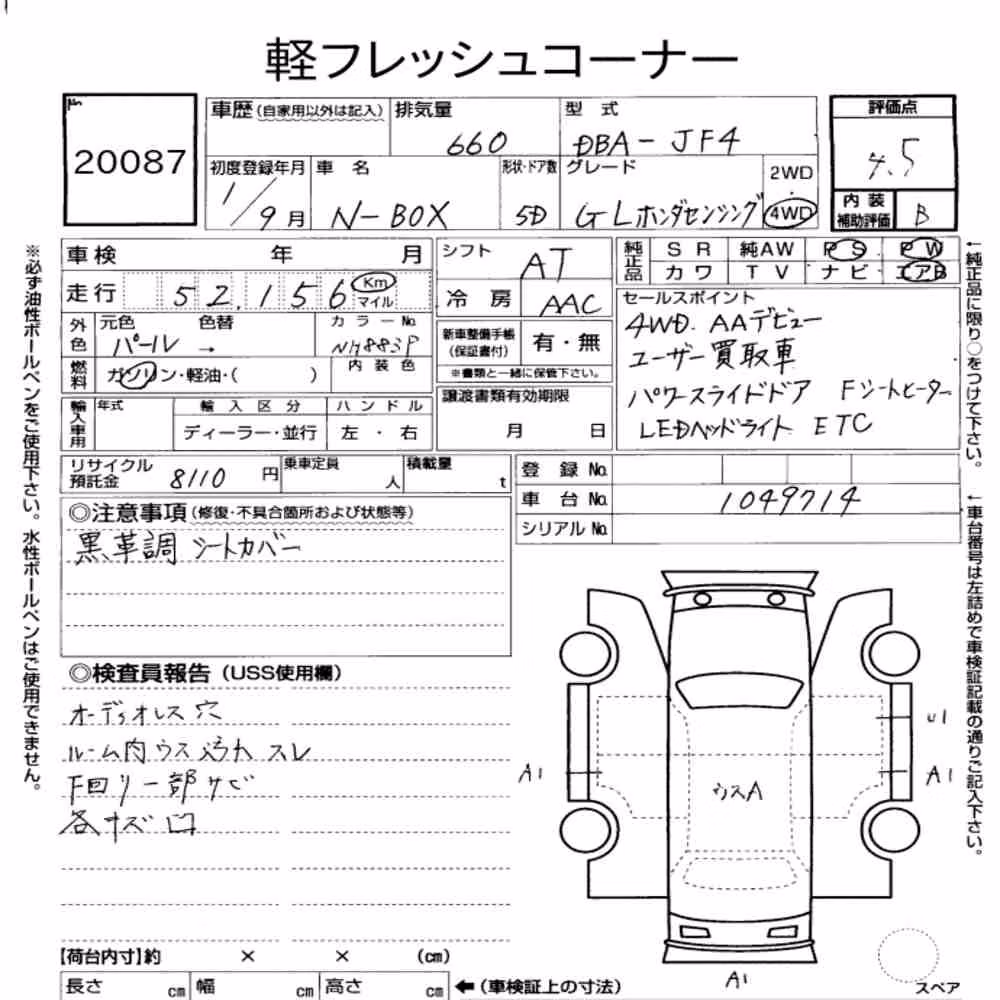 軽フレッシュコーナー
20087
車歴(自家用以外は記入) 排気量 660 型式 DBA-JF4
評価点 4.5
初度登録年月 1/9月 車名 N-BOX 形状・ドア数 5D グレード GLホンダセンシング 2WD 4WD
内装補助評価 B
車検 年 月
シフト AT
純正品 SR 純AW PS PW
カワ TV ナビ エアB
走行 52,156 Km マイル
冷房 AAC
外色 元色 パール 色替 → カラーNo. NH883P
燃料 ガソリン・軽油・( ) 内装色
新車整備手帳(保証書付) 有・無
※書類と一緒に保管下さい。
セールスポイント
4WD. AAデビュー
ユーザー買取車
パワースライドドア Fシートヒーター
LEDヘッドライト ETC
輸入車用 年式 輸入区分 ハンドル
ディーラー・並行 左・右
譲渡書類有効期限
月 日
リサイクル預託金 8110円 乗車定員 人 積載量 t
登録No.
車台No. 1049714
シリアルNo.
◎注意事項(修復・不具合箇所および状態等)
黒革調 シートカバー
◎検査員報告(USS使用欄)
オーディオレス穴
ルーム内ウス汚れ スレ
下回り一部サビ
各キズ凹
U1
A1
A1
ウスA
A1
スペア
【荷台内寸】約 × × (cm)
長さ cm 幅 cm 高さ cm ←(車検証上の寸法)
※必ず油性ボールペンをご使用下さい。水性ボールペンはご使用できません。
←純正品に限り○をつけて下さい。
←車台番号は左詰めで車検証記載の通りご記入下さい。